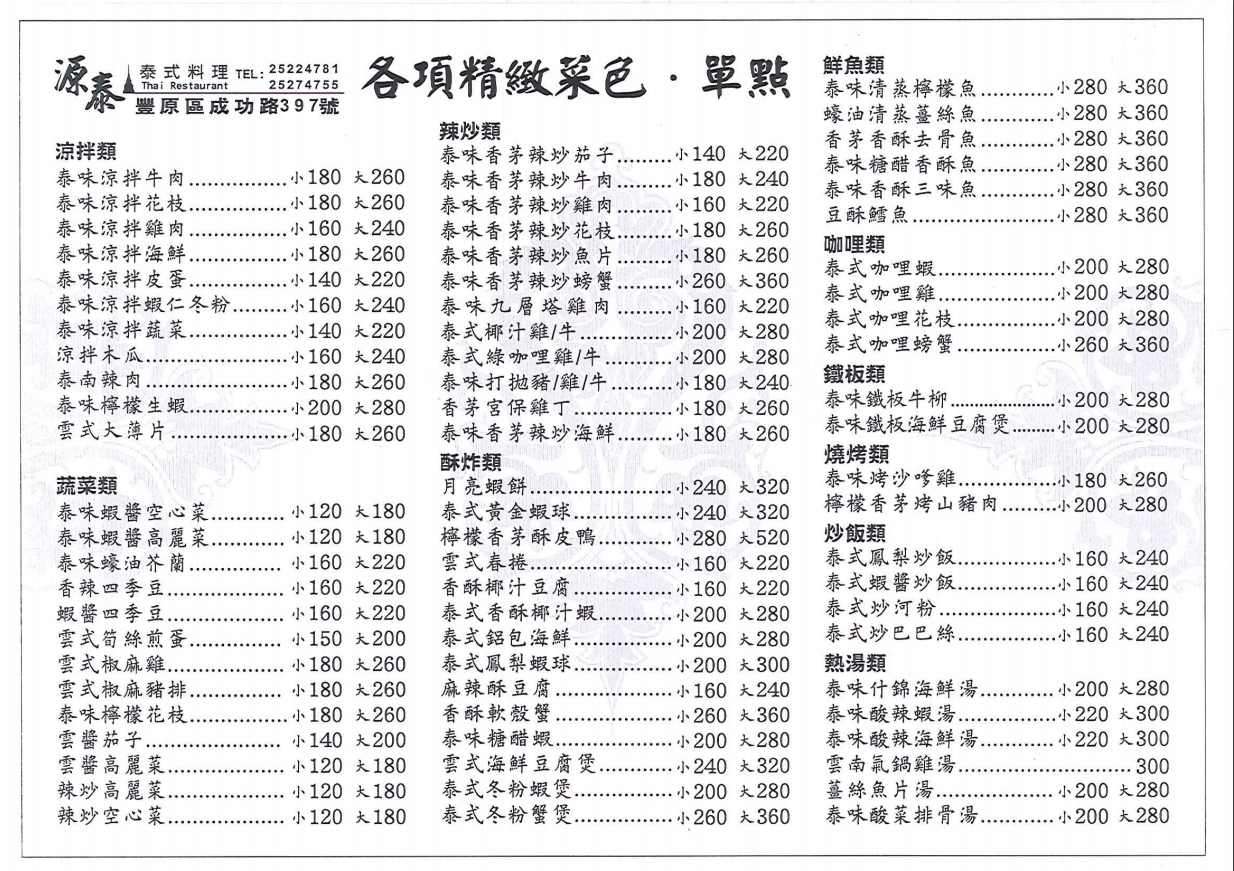 源泰
泰式料理 TEL: 25224781
Thai Restaurant 25274755
豐原區成功路397號
各項精緻菜色·單點
涼拌類
泰味涼拌牛肉................小180 大260
泰味涼拌花枝................小180 大260
泰味涼拌雞肉................小160 大240
泰味涼拌海鮮................小180 大260
泰味涼拌皮蛋................小140 大220
泰味涼拌蝦仁冬粉.........小160 大240
泰味涼拌蔬菜................小140 大220
涼拌木瓜.......................小160 大240
泰南辣肉.......................小180 大260
泰味檸檬生蝦................小200 大280
雲式大薄片...................小180 大260
蔬菜類
泰味蝦醬空心菜............小120 大180
泰味蝦醬高麗菜............小120 大180
泰味蠔油芥蘭...............小160 大220
香辣四季豆...................小160 大220
蝦醬四季豆...................小160 大220
雲式筍絲煎蛋...............小150 大200
雲式椒麻雞...................小180 大260
雲式椒麻豬排...............小180 大260
泰味檸檬花枝...............小180 大260
雲醬茄子......................小140 大200
雲醬高麗菜...................小120 大180
辣炒高麗菜...................小120 大180
辣炒空心菜...................小120 大180
辣炒類
泰味香茅辣炒茄子.........小140 大220
泰味香茅辣炒牛肉.........小180 大240
泰味香茅辣炒雞肉.........小160 大220
泰味香茅辣炒花枝.........小180 大260
泰味香茅辣炒魚片.........小180 大260
泰味香茅辣炒螃蟹.........小260 大360
泰味九層塔雞肉.........小160 大220
泰式椰汁雞/牛..............小200 大280
泰式綠咖哩雞/牛...........小200 大280
泰味打拋豬/雞/牛..........小180 大240
香茅宮保雞丁...............小180 大260
泰味香茅辣炒海鮮.........小180 大260
酥炸類
月亮蝦餅......................小240 大320
泰式黃金蝦球...............小240 大320
檸檬香茅酥皮鴨............小280 大520
雲式春捲......................小160 大220
香酥椰汁豆腐...............小160 大220
泰式香酥椰汁蝦............小200 大280
泰式鋁包海鮮...............小200 大280
泰式鳳梨蝦球...............小200 大300
麻辣酥豆腐...................小160 大240
香酥軟殼蟹...................小260 大360
泰味糖醋蝦...................小200 大280
雲式海鮮豆腐煲............小240 大320
泰式冬粉蝦煲...............小200 大280
泰式冬粉蟹煲...............小260 大360
鮮魚類
泰味清蒸檸檬魚............小280 大360
蠔油清蒸薑絲魚............小280 大360
香茅香酥去骨魚............小280 大360
泰味糖醋香酥魚............小280 大360
泰味香酥三味魚............小280 大360
豆酥鱈魚......................小280 大360
咖哩類
泰式咖哩蝦...................小200 大280
泰式咖哩雞...................小200 大280
泰式咖哩花枝...............小200 大280
泰式咖哩螃蟹...............小260 大360
鐵板類
泰味鐵板牛柳...............小200 大280
泰味鐵板海鮮豆腐煲.........小200 大280
燒烤類
泰味烤沙嗲雞...............小180 大260
檸檬香茅烤山豬肉.........小200 大280
炒飯類
泰式鳳梨炒飯...............小160 大240
泰式蝦醬炒飯...............小160 大240
泰式炒河粉...................小160 大240
泰式炒巴巴絲...............小160 大240
熱湯類
泰味什錦海鮮湯............小200 大280
泰味酸辣蝦湯...............小220 大300
泰味酸辣海鮮湯............小220 大300
雲南氣鍋雞湯.............................300
薑絲魚片湯...................小200 大280
泰味酸菜排骨湯............小200 大280